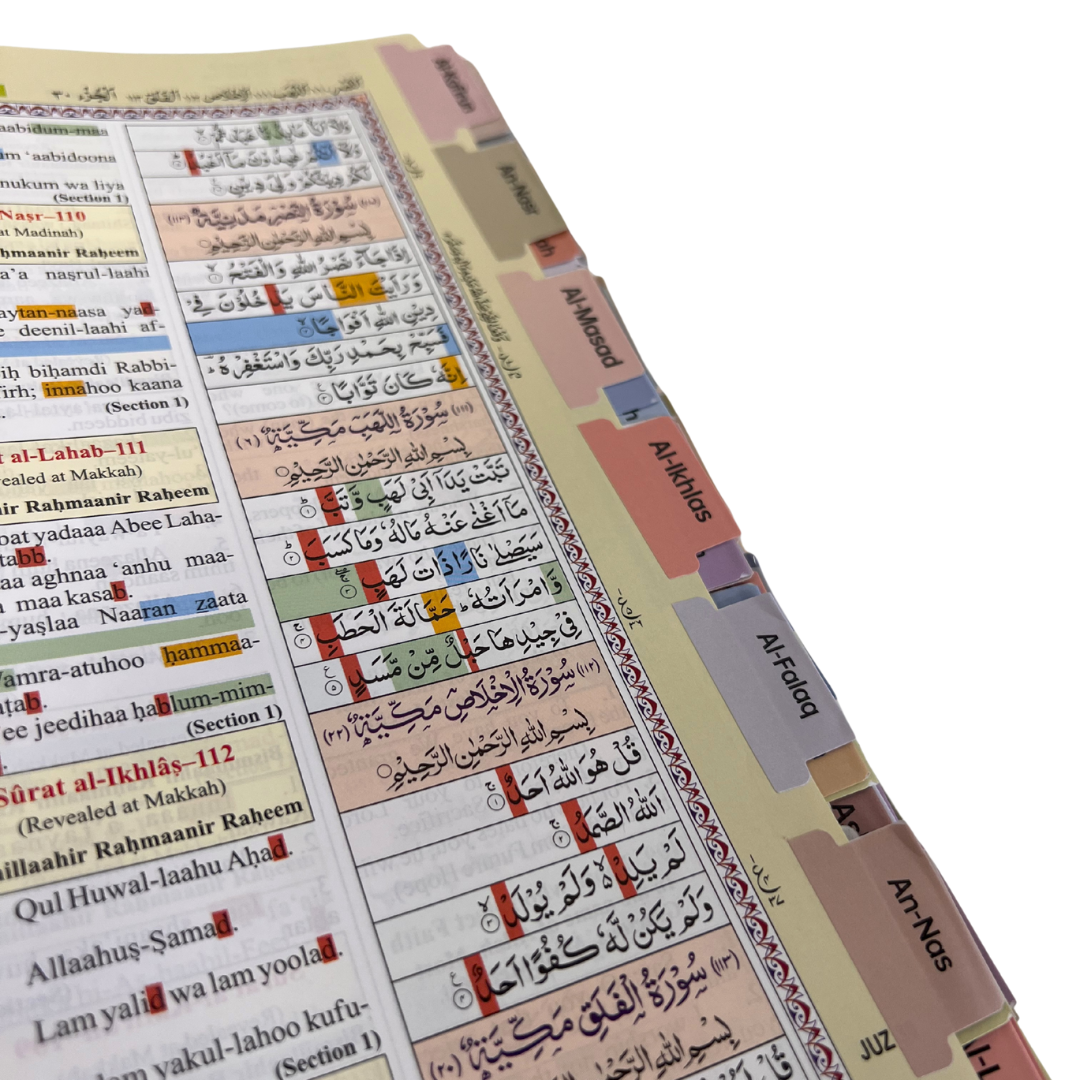 النصر ١١٠ اللهب ١١١ الإخلاص ١١٢ الفلق ١١٣ الجزء ٣٠
aabidum-maa
im ‘aabidoona
nukum wa liya
(Section 1)
Naṣr–110
at Madinah)
ahmaanir Raḥeem
a’a naṣrul-laahi
aytan-naasa yad-
e deenil-laahi af-
biḥ biḥamdi Rabbi-
firh; innahoo kaana
(Section 1)
t al-Lahab–111
vealed at Makkah)
ir Raḥmaanir Raḥeem
bat yadaaa Abee Laha-
tabb.
aa aghnaa ‘anhu maa-
maa kasab.
-yaṣlaa Naaran zaata
amra-atuhoo ḥammaa-
aṭab.
ee jeedihaa ḥablum-mim-
(Section 1)
Sûrat al-Ikhlâṣ–112
(Revealed at Makkah)
millaahir Raḥmaanir Raḥeem
Qul Huwal-laahu Aḥad.
Allaahuṣ-Ṣamad.
Lam yalid wa lam yoolad.
lam yakul-lahoo kufu-
(Section 1)
وَلَآ أَنَا عَابِدٌ مَّا عَبَدتُّمْ
وَلَآ أَنتُمْ عَٰبِدُونَ مَآ أَعْبُدُ
لَكُمْ دِينُكُمْ وَلِيَ دِينِ
(١١٠) سُورَةُ النَّصْرِ مَدَنِيَّةٌ (١١٤)
بِسْمِ اللهِ الرَّحْمٰنِ الرَّحِيْمِ
إِذَا جَآءَ نَصْرُ اللهِ وَالْفَتْحُ ١
وَرَأَيْتَ النَّاسَ يَدْخُلُونَ فِي
دِيْنِ اللهِ أَفْوَاجًا ٢
فَسَبِّحْ بِحَمْدِ رَبِّكَ وَاسْتَغْفِرْهُ
إِنَّهُ كَانَ تَوَّابًا ٣
(١١١) سُورَةُ اللَّهَبِ مَكِّيَّةٌ (٦)
بِسْمِ اللهِ الرَّحْمٰنِ الرَّحِيْمِ
تَبَّتْ يَدَآ أَبِي لَهَبٍ وَّتَبَّ ١
مَآ أَغْنٰى عَنْهُ مَالُهُ وَمَا كَسَبَ ٢
سَيَصْلٰى نَارًا ذَاتَ لَهَبٍ ٣
وَّامْرَأَتُهُ حَمَّالَةَ الْحَطَبِ ٤
فِي جِيْدِهَا حَبْلٌ مِّنْ مَّسَدٍ ٥
(١١٢) سُورَةُ الْإِخْلَاصِ مَكِّيَّةٌ (٢٢)
بِسْمِ اللهِ الرَّحْمٰنِ الرَّحِيْمِ
قُلْ هُوَ اللهُ أَحَدٌ ١
اَللهُ الصَّمَدُ ٢
لَمْ يَلِدْ وَلَمْ يُوْلَدْ ٣
وَلَمْ يَكُنْ لَّهُ كُفُوًا أَحَدٌ ٤
(١١٣) سُورَةُ الْفَلَقِ مَكِّيَّةٌ (٢٠)
بِسْمِ اللهِ الرَّحْمٰنِ
قُلْ
An-Nasr
Al-Masad
Al-Ikhlas
Al-Falaq
An-Nas
JUZ